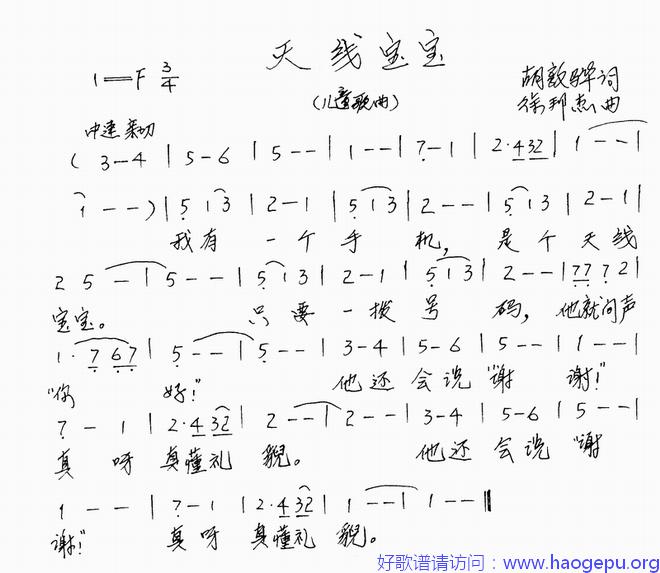 天线宝宝
1=F 3/4
(儿童歌曲)
胡敦骅词
徐邦杰曲
中速 亲切
( 3-4 | 5-6 | 5-- | 1-- | 7-1 | 2·432 | 1--
1--) | 5 1 3 | 2-1 | 5 1 3 | 2-- | 5 1 3 | 2-1 |
我有 一个手 机, 是个天线
2 5 - | 5-- | 5 1 3 | 2-1 | 5 1 3 | 2-- | 77 7 2 |
宝宝。 只要一拨号 码, 他就问声
1· 7 67 | 5-- | 5-- | 3-4 | 5-6 | 5-- | 1-- |
“你 好!” 他还会说“谢 谢!”
7 - 1 | 2·432 | 2-- | 2-- | 3-4 | 5-6 | 5-- |
真呀真懂礼貌。 他还会说“谢
1-- | 7-1 | 2·432 | 1-- | 1-- ‖
谢!” 真呀真懂礼貌。
好歌谱请访问：www.haogepu.org